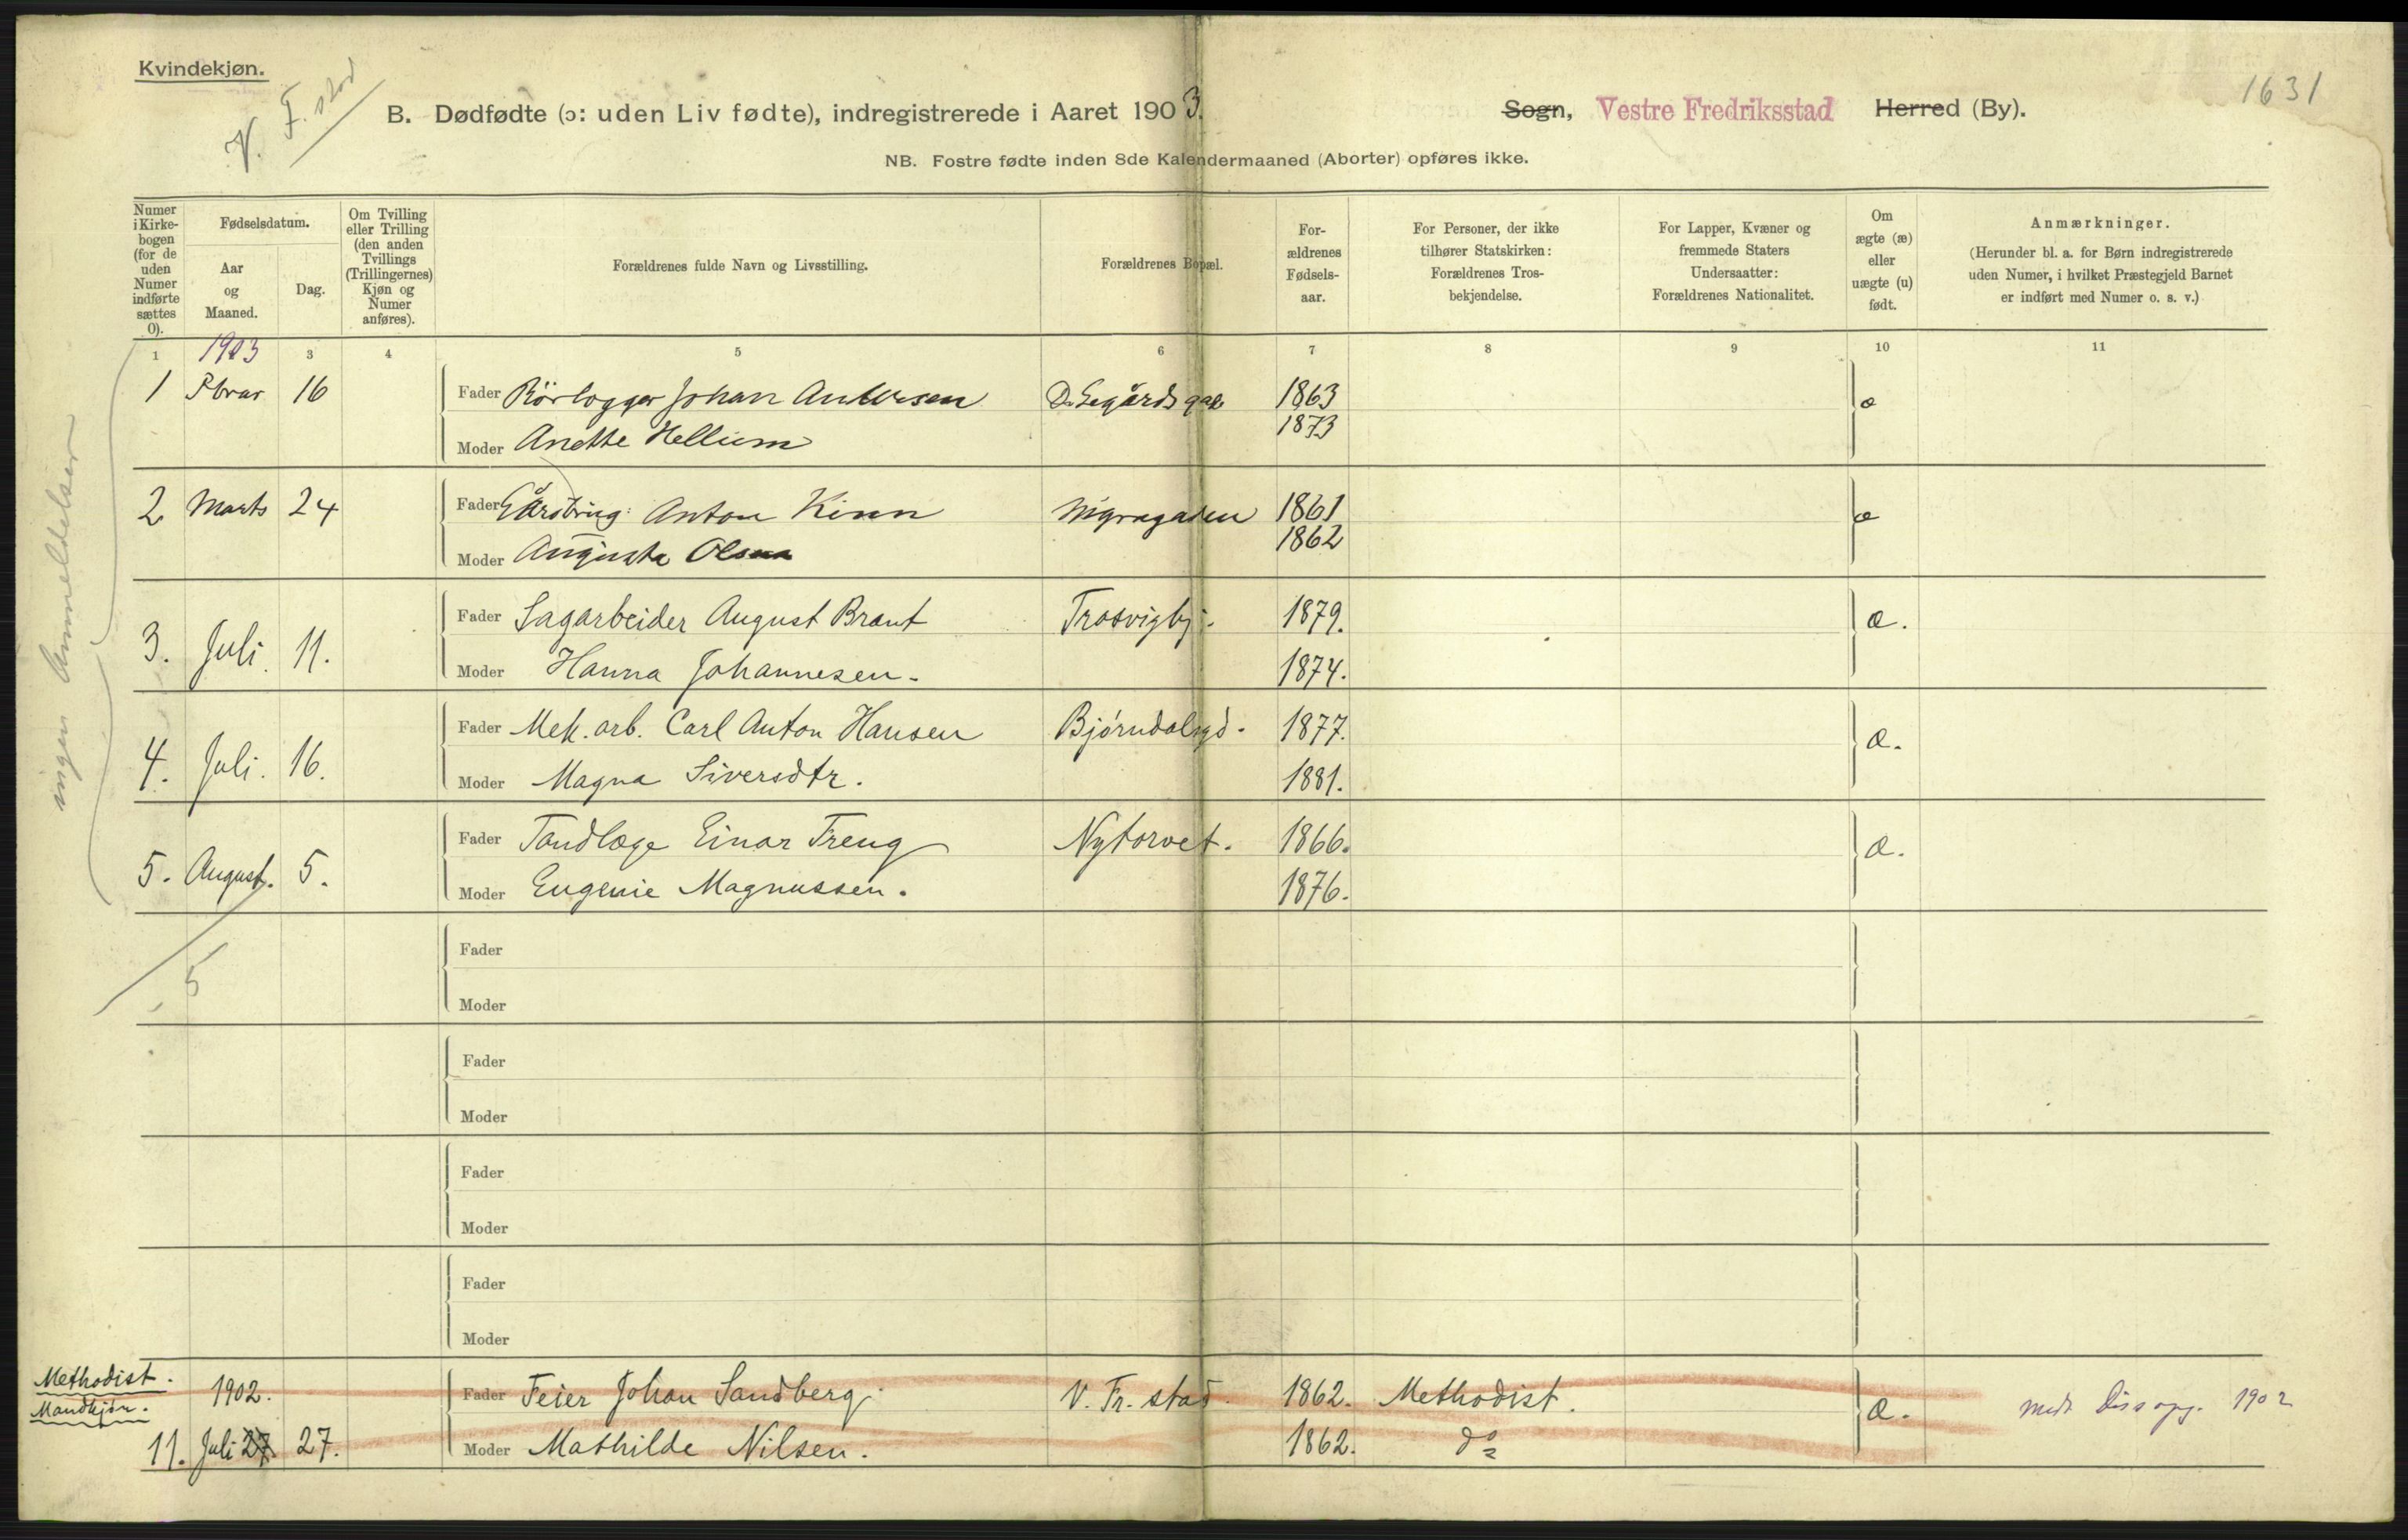 Kvindekjøn.
V. F. stad
B. Dødfødte (ɔ: uden Liv fødte), indregistrerede i Aaret 1903. Sogn, Vestre Fredriksstad Herred (By).
1631
NB. Fostre fødte inden 8de Kalendermaaned (Aborter) opføres ikke.
Numer i Kirke- bogen (for de uden Numer indførte sættes 0).
Fødselsdatum.
Aar og Maaned.
Dag.
Om Tvilling eller Trilling (den anden Tvillings (Trillingernes) Kjøn og Numer anføres).
Forældrenes fulde Navn og Livsstilling.
Forældrenes Bopæl.
For- ældrenes Fødsels- aar.
For Personer, der ikke tilhører Statskirken: Forældrenes Tros- bekjendelse.
For Lapper, Kvæner og fremmede Staters Undersaatter: Forældrenes Nationalitet.
Om ægte (æ) eller uægte (u) født.
Anmærkninger.
(Herunder bl. a. for Børn indregistrerede uden Numer, i hvilket Præstegjeld Barnet er indført med Numer o. s. v.)
1 1903 3 4 5 6 7 8 9 10 11
ingen Anmeldelser
1 Fbrar 16 Fader Rørlægger Johan Andersen 1863 æ
Moder Anette Hellum 1873
2 Marts 24 Fader Anton Kinn 1861 æ
Moder Augusta Olsen 1862
3. Juli. 11. Fader Sagarbeider August Brant Trosvigbg. 1879. æ.
Moder Hanna Johannesen. 1874.
4. Juli. 16. Fader Mek. arb. Carl Anton Hansen Bjørndalsgd. 1877. æ.
Moder Magna Siversdtr. 1881.
5. August. 5. Fader Tandlæge Einar Treng Nytorvet. 1866. æ.
Moder Eugenie Magnussen. 1876.
5
Fader
Moder
Fader
Moder
Fader
Moder
Fader
Moder
Methodist.
Mandkjøn.
1902. Fader Feier Johan Sandberg. V. Fr. stad. 1862. Methodist. æ. 1902
11. Juli 27 27. Moder Mathilde Nilsen. 1862. do